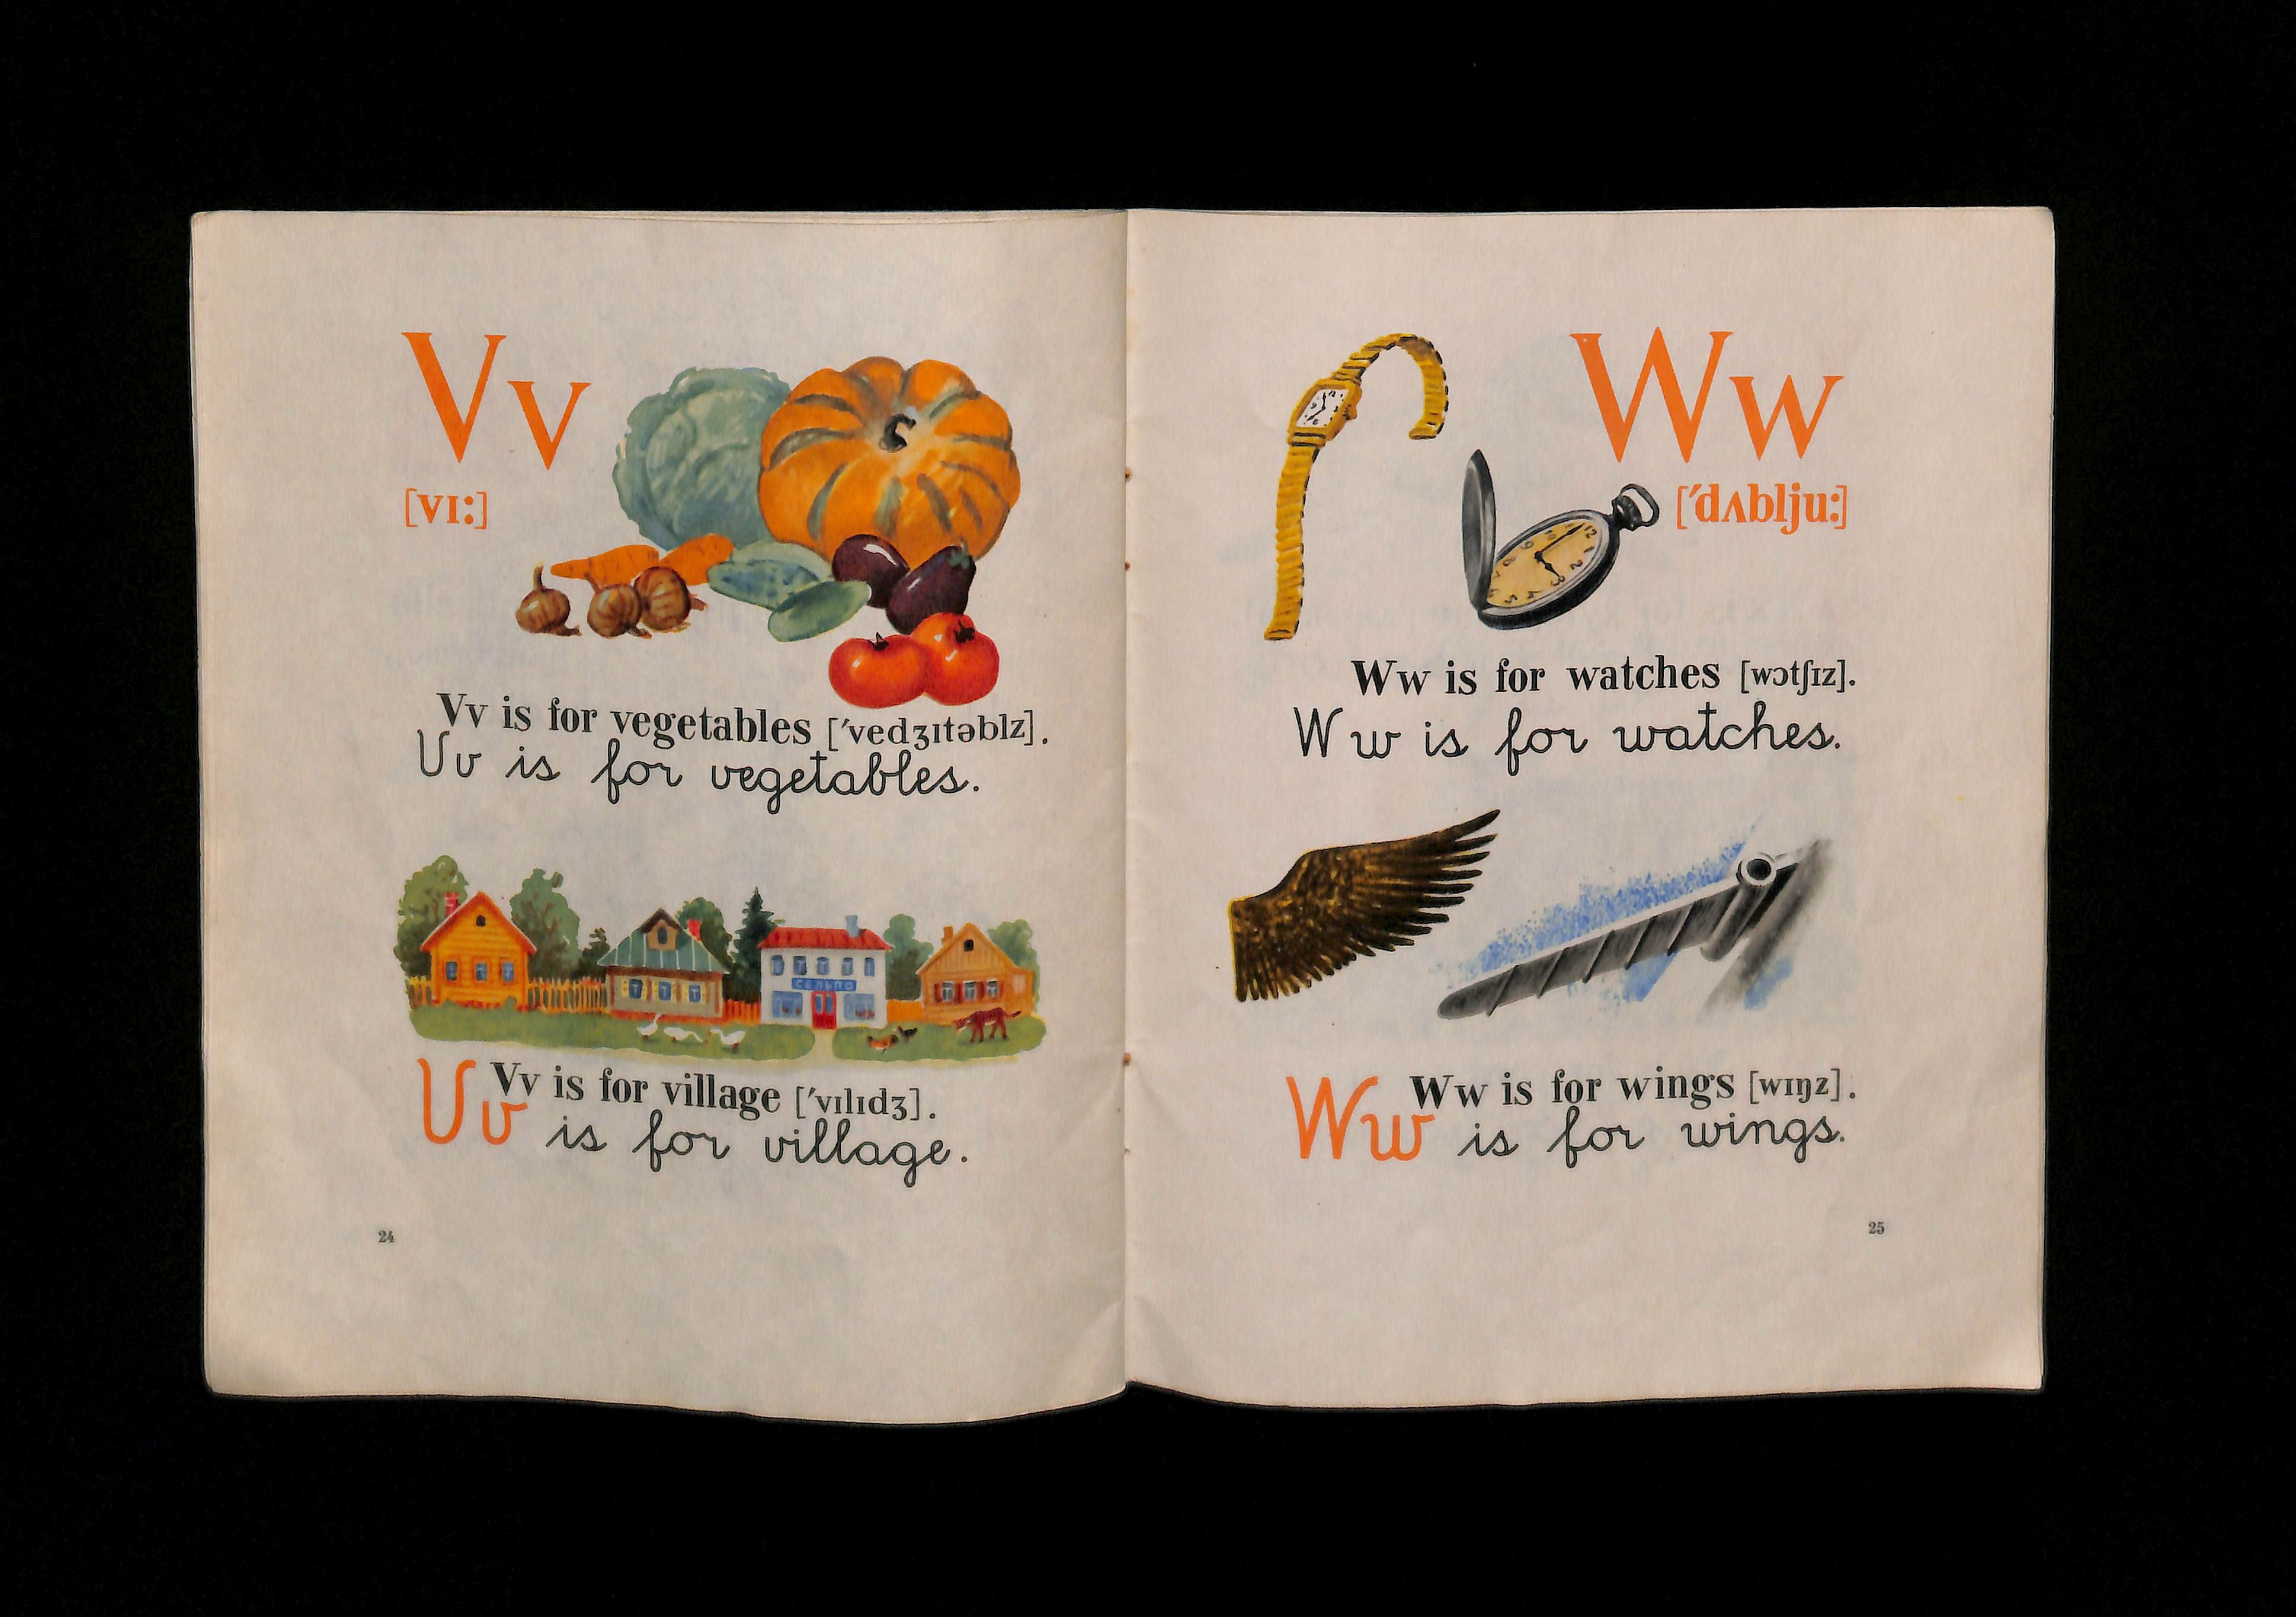 Vv
[vɪ:]
Vv is for vegetables [ˈvedʒɪtəblz].
Vv is for vegetables.
СЕЛЬПО
Vv is for village [ˈvɪlɪdʒ].
Vv is for village.
24
Ww
[ˈdʌblju:]
Ww is for watches [wɔtʃɪz].
Ww is for watches.
Ww is for wings [wɪŋz].
Ww is for wings.
25